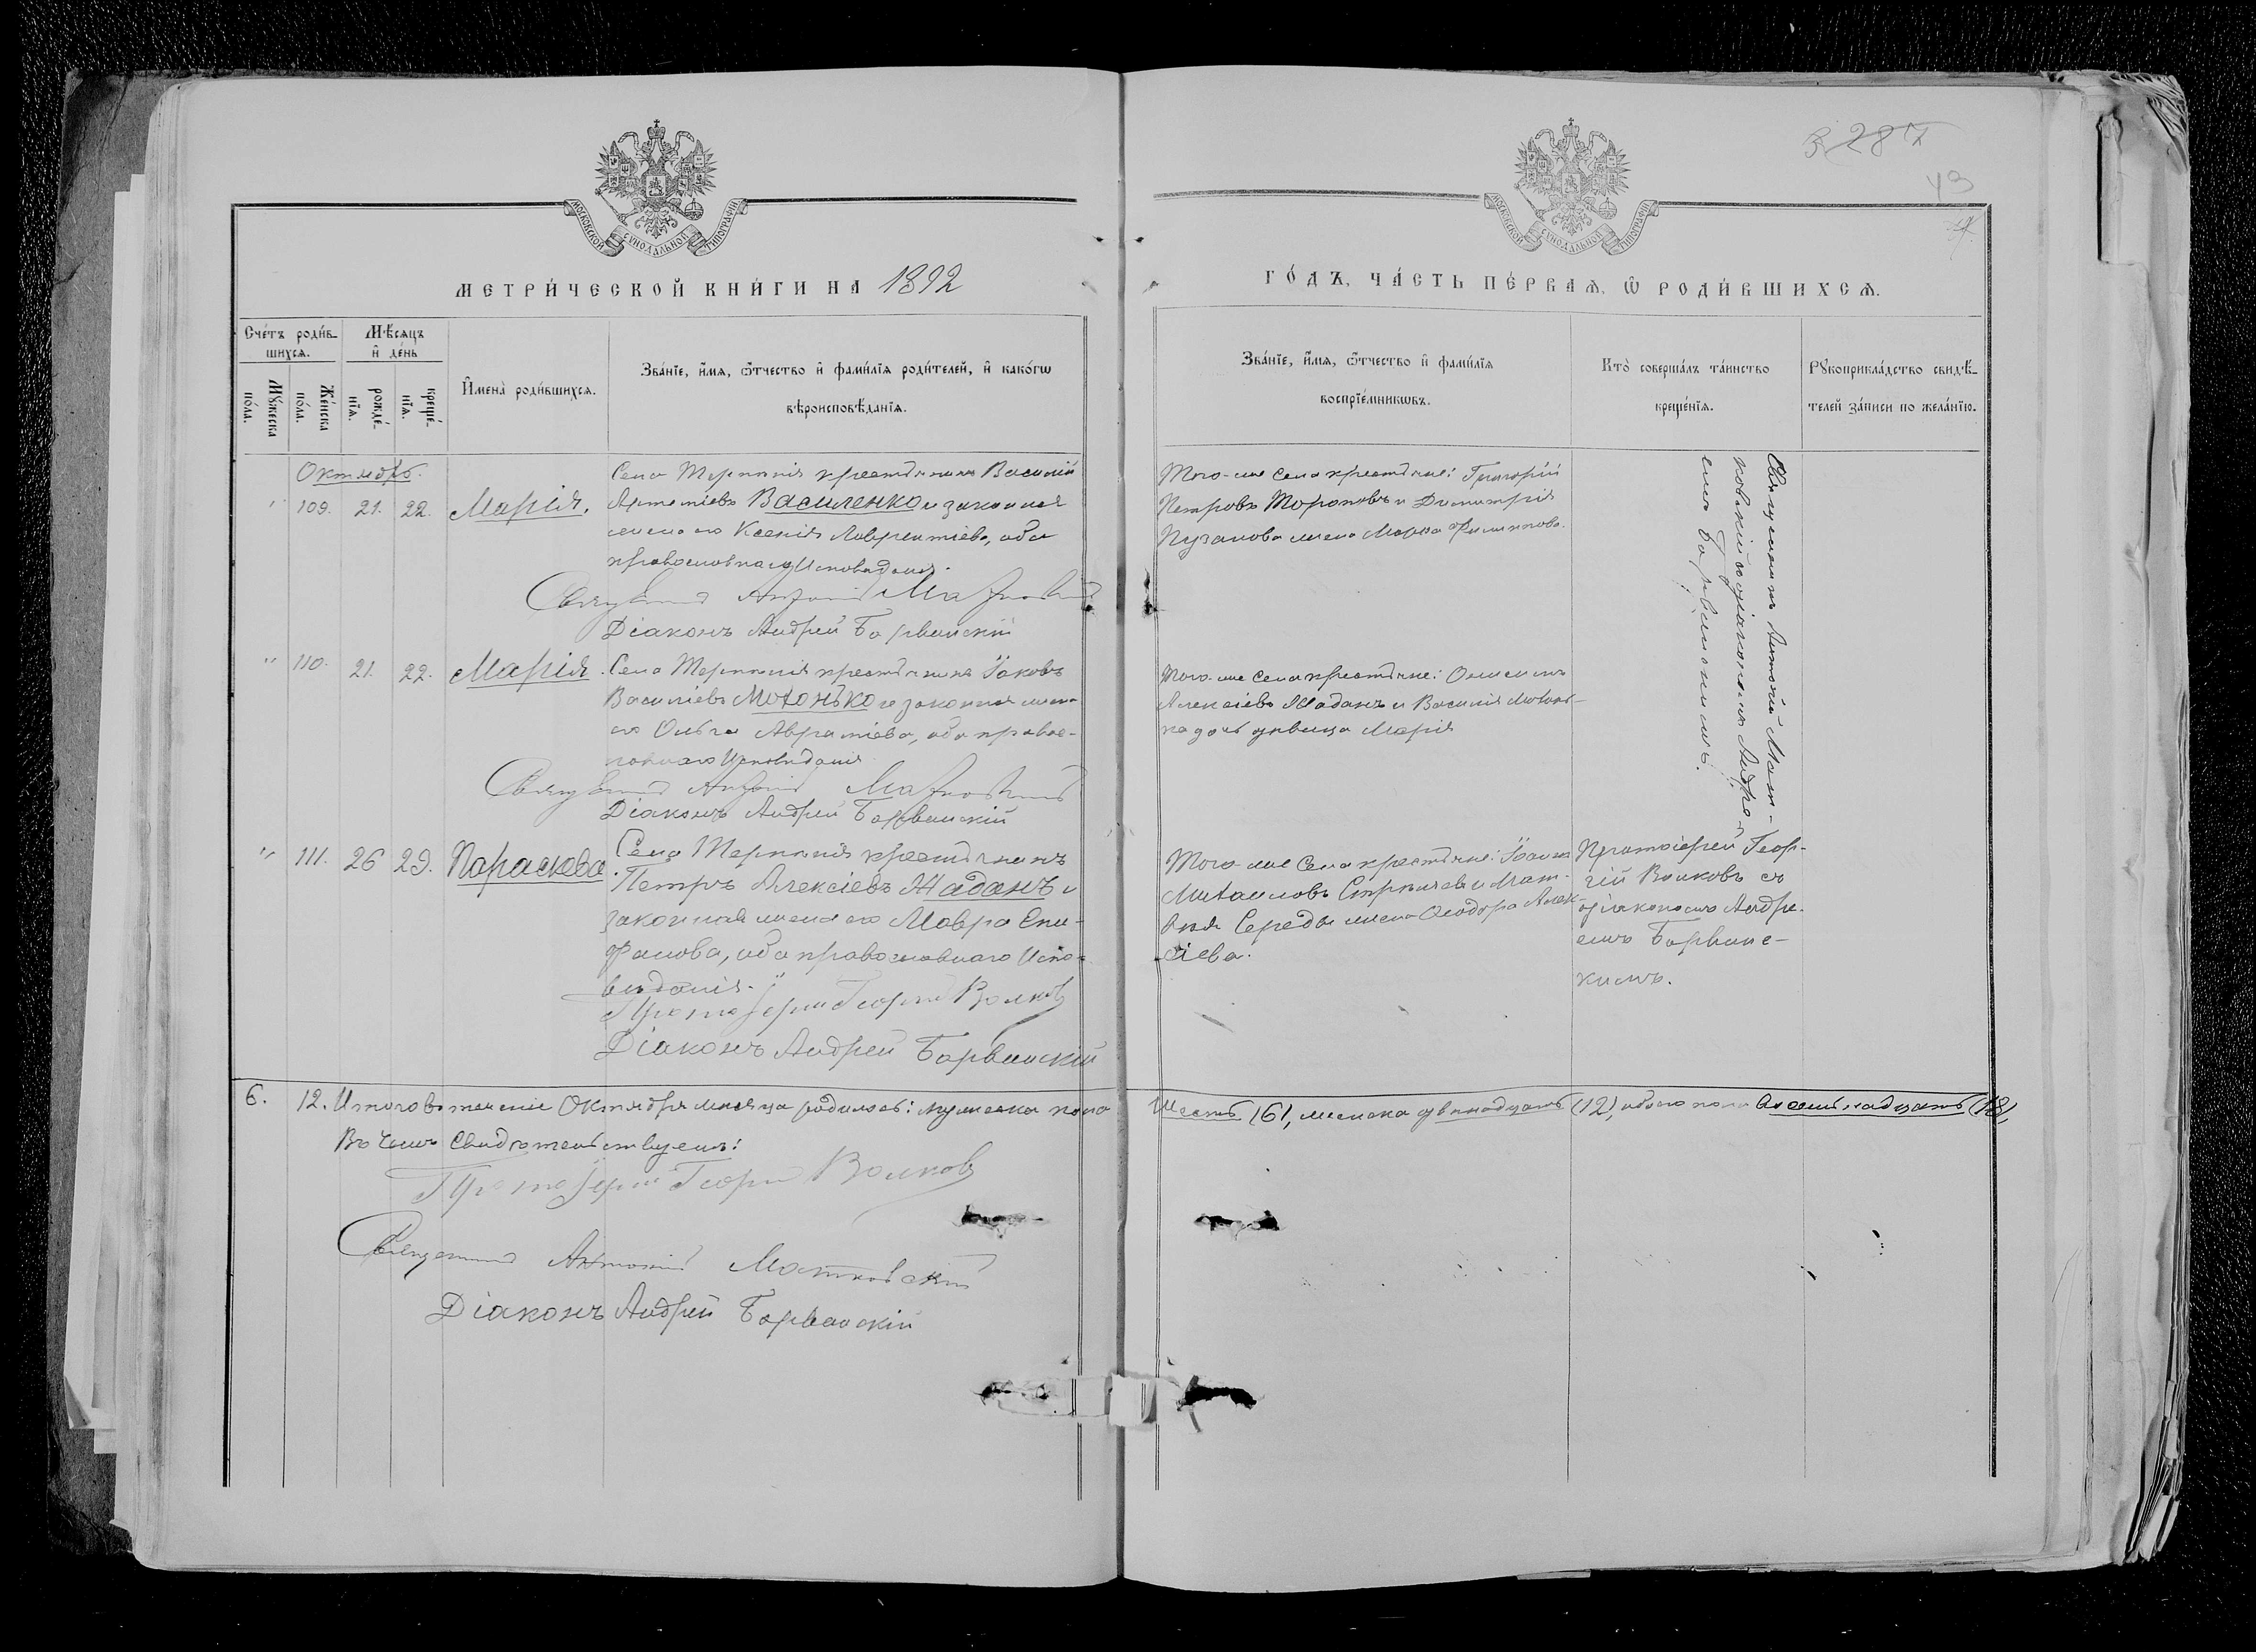 287
43
МОСКОВСКОЙ СУНОДАЛЬНОЙ ТИПОГРАФІИ
МОСКОВСКОЙ СУНОДАЛЬНОЙ ТИПОГРАФІИ
МЕТРИ́ЧЕСКОЙ КНИ́ГИ НА 1892
ГО́ДЪ, ЧА́СТЬ ПЕ́РВАѦ, Ѡ РОДИ́ВШИХСѦ.
Сче́тъ роди́в-
шихсѧ.
Мѣ́сѧцъ
и҆ де́нь
Мꙋ́жеска
по́ла.
Же́нска
по́ла.
рожде́-
нїѧ.
креще́-
нїѧ.
И҆мена̀ роди́вшихсѧ.
Зва́нїе, и҆́мѧ, ѻ҆́тчество и҆ фами́лїѧ роди́телей, и҆ како́гѡ
вѣроисповѣ́данїѧ.
Зва́нїе, и҆́мѧ, ѻ҆́тчество и҆ фами́лїѧ
воспрїе́мникѡвъ.
Кто̀ соверша́лъ та́инство
креще́нїѧ.
Рꙋкоприкла́дство свидѣ́-
телей за́писи по жела́нїю.
Октябрь.
" 109. 21. 22. Марія.
Села Терпѣнія крестьянинъ Василій
Артеміевъ Василенко и законная
жена его Ксенія Лаврентіева, оба
православнаго Исповѣданія.
Священникъ Антоній Матковскій
Діаконъ Андрей Барвинскій
Того-же села крестьяне: Григорій
Петровъ Тороповъ и Димитрія
Пузанова жена Марѳа Филиппова.
Священникъ Антоній Мат-
ковскій съ діакономъ Андре-
емъ Барвинскимъ.
" 110. 21. 22. Марія.
Села Терпѣнія крестьянинъ Іаковъ
Василіевъ Мотонько и законная жена
его Ольга Авраміева, оба правос-
лавнаго Исповѣданія
Священникъ Антоній Матковскій
Діаконъ Андрей Барвинскій
Того-же села крестьяне:
Алексіевъ Жаданъ и Василія Мотонь-
ка дочь дѣвица Марія
" 111. 26 29. Параскева.
Села Терпѣнія крестьянинъ
Петръ Алексіевъ Жаданъ и
законная жена его Мавра Епи-
фанова, оба православнаго Испо-
вѣданія.
Протоіерей Георгій Волковъ
Діаконъ Андрей Барвинскій
Того-же села крестьяне: Іоаннъ
Михаиловъ и Мат-
вѣя Середы жена Ѳеодора Алек-
сіева.
Протоіерей Геор-
гій Волковъ съ
діакономъ Андре-
емъ Барвинс-
кимъ.
6. 12. Итого въ теченіе Октября мѣсяца родилось: мужеска пола
Шесть (6), женска двѣнадцать (12), обоего пола Восемьнадцать (18),
Въ чемъ Свидѣтельствуемъ:
Протоіерей Георгій Волковъ
Священникъ Антоній Матковскій
Діаконъ Андрей Барвинскій